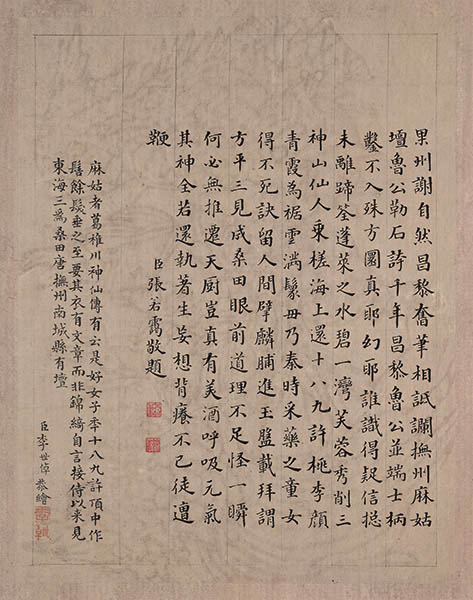 果州謝自然昌黎奮筆相詆讕撫州麻姑
壇魯公勒石誇千年昌黎魯公並端士柄
鑿不入殊方圜真耶幻耶誰識得疑信捴
未離蹄筌蓬萊之水碧一灣芙蓉秀削三
神山仙人乘槎海上還十八九許桃李顏
青霞為裾雲滿鬟毋乃秦時采藥之童女
得不死訣留人間擘麟脯進玉盤載拜謂
方平三見成桑田眼前道理不足怪一瞬
何必無推遷天厨豈真有美酒呼吸元氣
其神全若還執著生妄想背癢不已徒遭
鞭
臣張若靄敬題
麻姑者葛稚川神仙傳有云是好女子秊十八九許頂中作
髻餘髮垂之至要其衣有文章而非錦綺自言接侍以来見
東海三為桑田唐撫州南城縣有壇
臣李世倬恭繪